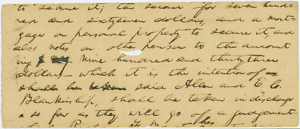 to secure it, the second for seven hund-
red and sixty seven dollars, and a mort-
gage on personal property to secure it, and
also notes on other persons to the amount
ing nine hundred and thirty three
dollars which it is the intention of
said Allen and E. C.
Blankinship, shall be taken in discharge
so far as they will go of a judgement